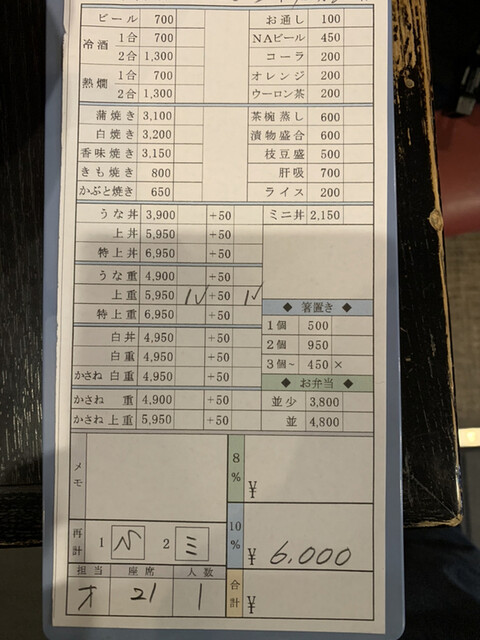 ビール 700
冷酒 1合 700
2合 1,300
熱燗 1合 700
2合 1,300
お通し 100
NAビール 450
コーラ 200
オレンジ 200
ウーロン茶 200
蒲焼き 3,100
白焼き 3,200
香味焼き 3,150
きも焼き 800
かぶと焼き 650
茶椀蒸し 600
漬物盛合 600
枝豆盛 500
肝吸 700
ライス 200
うな丼 3,900 +50
上丼 5,950 +50
特上丼 6,950 +50
ミニ丼 2,150
うな重 4,900 +50
上重 5,950 1✓ +50 1✓
特上重 6,950 +50
◆ 箸置き ◆
1個 500
2個 950
3個~ 450 ×
白丼 4,950 +50
白重 4,950 +50
かさね 白重 4,950 +50
かさね 重 4,900 +50
かさね 上重 5,950 +50
◆ お弁当 ◆
並少 3,800
並 4,800
メモ
8% ¥
再計 1 2 ミ
10% ¥ 6,000
担当 座席 人数
オ 21 1
合計 ¥